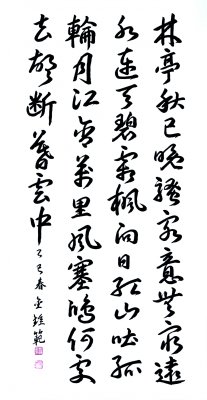 林亭秋已晚騷客意無窮遠
水連天碧霜楓向日紅山吐孤
輪月江含萬里風塞鴻何處
去聲斷暮雲中
乙巳春 範